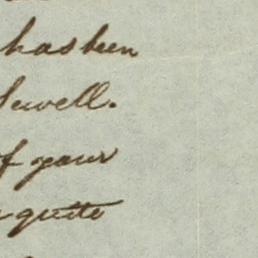 has been
Sewell.
of your
quite